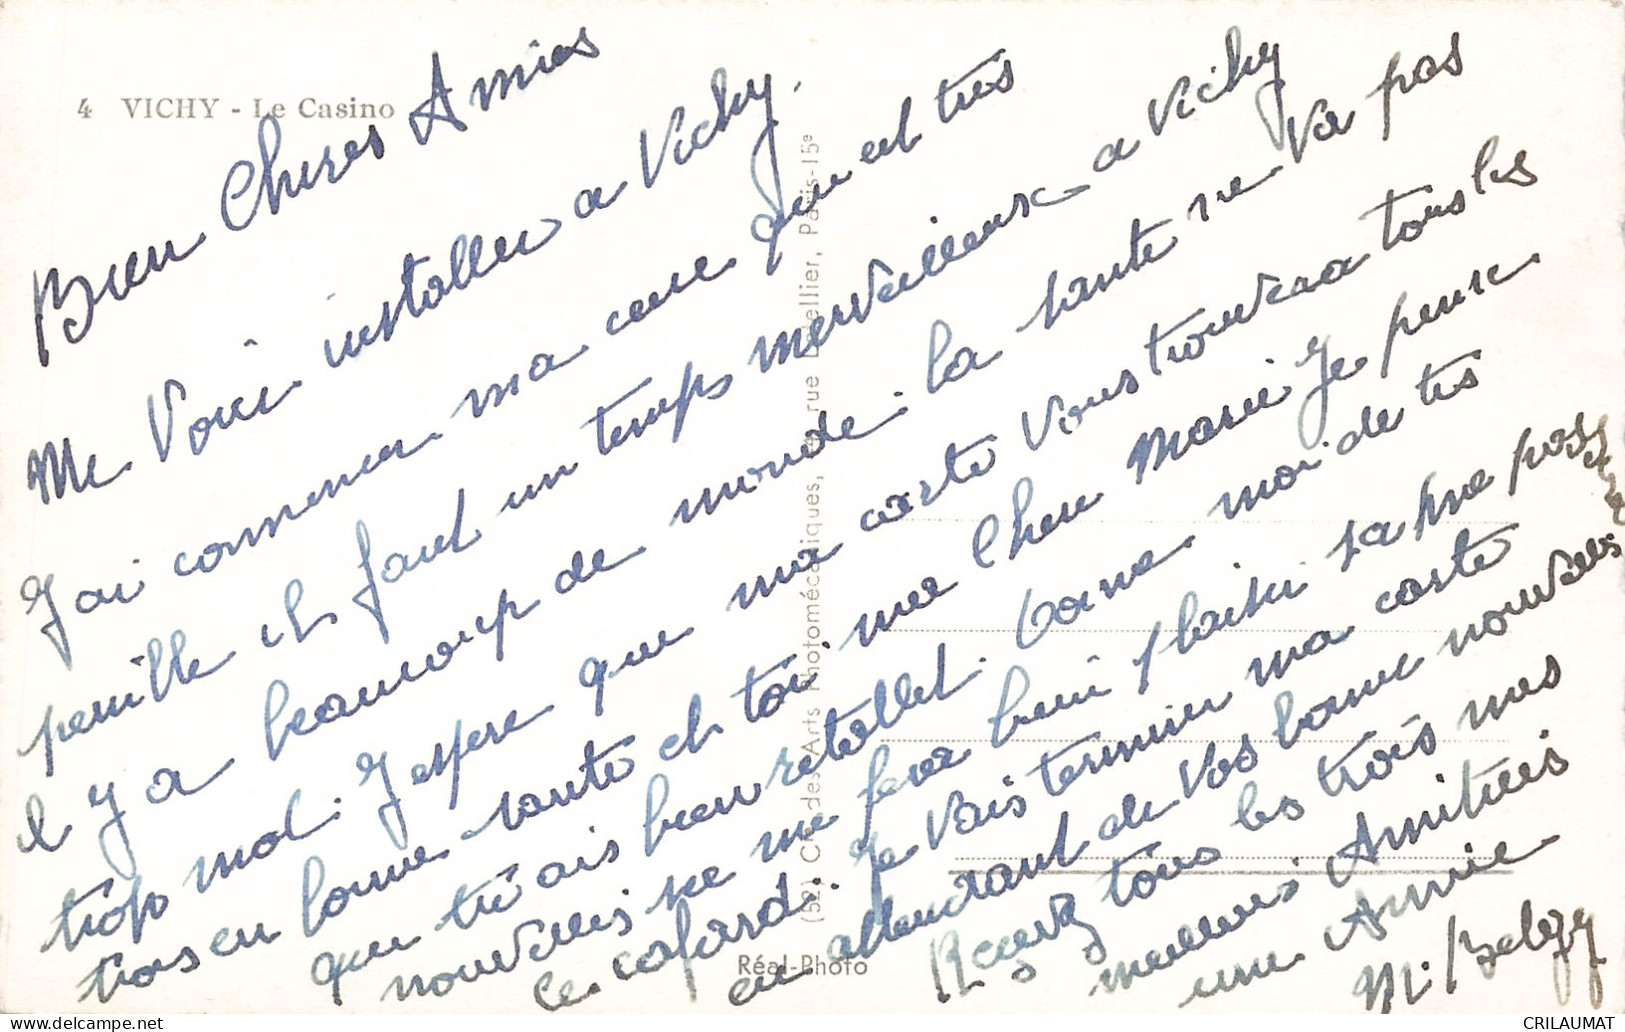 4 VICHY - Le Casino
Bien Cheres Amies
Me Voici installer a Vichy.
J ai commencer ma cure qui est tres
penible et faut un temps merveilleux a Vichy
il y a beaucoup de monde. la sante ne va pas
trop mal. J espere que ma carte vous trouvera tous les
trois en bonne sante et toi ma Cher Marie Je pense
que tu ais bien retablit. Donne moi de tes
nouvelles sa me fera bien plaisir sa me passera
le cafard. Je vais terminer ma carte
en attendant de vos bonne nouvelles
Recevez tous les trois mes
meilleurs Amitiees
une Amie
M. Belgy
(52) Cie des Arts Photomécaniques, rue Paris-15e
Réal-Photo
CRILAUMAT